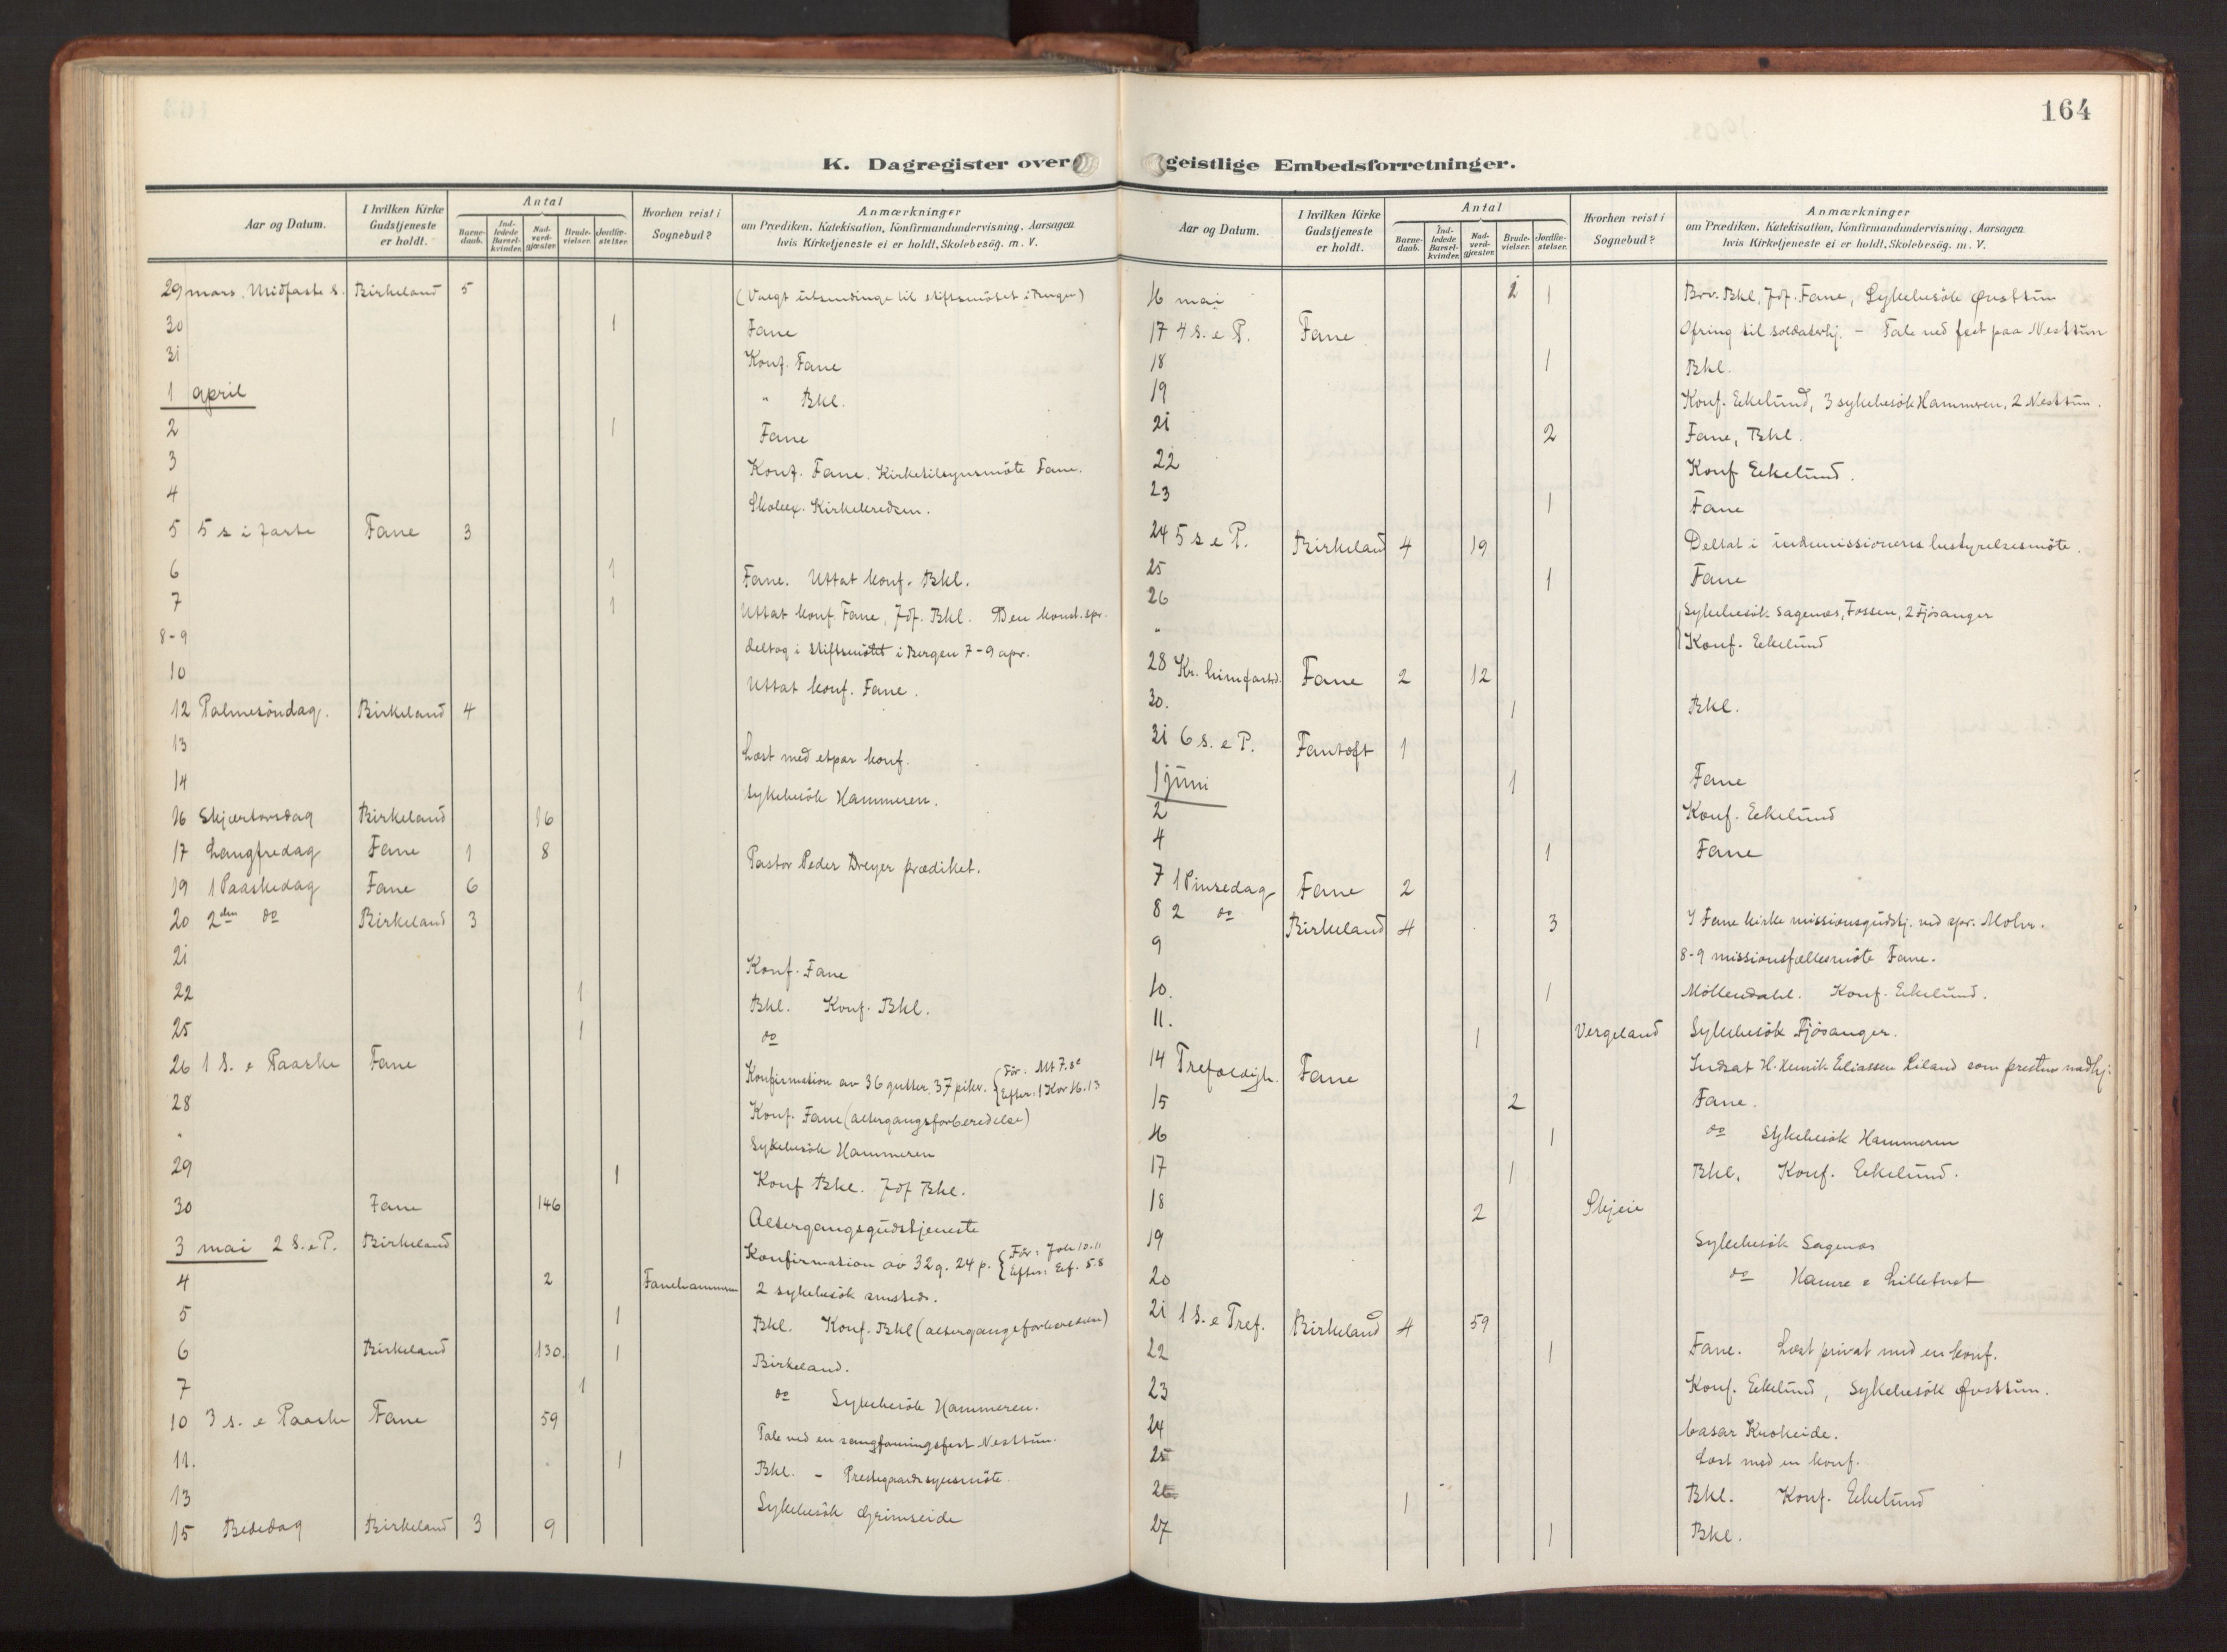 164
K. Dagregister over geistlige Embedsforretninger.
Aar og Datum.
I hvilken Kirke Gudstjeneste er holdt.
Antal
Barnedaab.
Indledede Barselkvinder.
Nadverdgjæster.
Brudevielser.
Jordfæstelser.
Hvorhen reist i Sognebud?
Anmærkninger
om Prædiken, Katekisation, Konfirmandundervisning, Aarsagen
hvis Kirketjeneste ei er holdt, Skolebesøg. m. V.
29 mars. Midfaste s. Birkeland 5 (Valgt utsendinge til stiftsmötet i Bergen)
30 1 Fane
31 Konf. Fane
1 april " Bkl.
2 1 Fane
3 Konf. Fane. Kirketilsynsmöte Fane.
4 Skoleex. Kirkekredsen.
5 5 s i faste Fane 3
6 1 Fane. Uttat konf. Bkl.
7 1 Uttat konf. Fane, Jdf. Bkl. Den konst. spr.
8-9 deltog i stiftsmötet i Bergen 7-9 apr.
10 Uttat konf. Fane.
12 Palmesöndag. Birkeland 4
13 Læst med etpar konf.
14 Sykebesök Hammeren.
16 Skjærtorsdag Birkeland 16
17 Langfredag Fane 1 8 Pastor Peder Dreyer prædiket.
19 1 Paaskedag Fane 6
20 2den do Birkeland 3
21 Konf. Fane
22 1 Bkl. Konf. Bkl.
25 1 do
26 1 S. e Paaske Fane Konfirmation av 36 gutter, 37 piker. { För: Mt 7.8 Efter: 1 Kor 16.13
28 Konf. Fane (altergangsforberedelse)
" Sykebesök Hammeren
29 1 Konf Bkl. Jdf Bkl.
30 Fane 146 Altergangsgudstjeneste
3 mai 2 S. e P. Birkeland Konfirmation av 32 g. 24 p. { För: Joh 10.11 Efter: Ef. 5.8
4 2 Fanehammeren 2 sykebesök smsteds.
5 1 Bkl. Konf. Bkl (altergangsforberedelse)
6 Birkeland 130. 1 Birkeland.
7 1 do Sykebesök Hammeren.
10 3 s. e Paaske Fane 59 Tale ved en sangforeningsfest Nesttun.
11. 1 Bkl. - Prestegaardssynsmöte.
13 Sykebesök Grimseide
15 Bededag Birkeland 3 9
Aar og Datum.
I hvilken Kirke Gudstjeneste er holdt.
Antal
Barnedaab.
Indledede Barselkvinder.
Nadverdgjæster.
Brudevielser.
Jordfæstelser.
Hvorhen reist i Sognebud?
Anmærkninger
om Prædiken, Katekisation, Konfirmandundervisning, Aarsagen
hvis Kirketjeneste ei er holdt, Skolebesøg. m. V.
16 mai 2 1 Brv. Bkl, Jdf. Fane, Sykebesök Övsttun
17 4 S. e P. Fane Ofring til soldaterhj. - Tale ved fest paa Nesttun
18 1 Bkl.
19 Konf. Eekelund, 3 sykebesök Hammeren, 2 Nesttun.
21 2 Fane, Bkl.
22 Konf Eekelund.
23 1 Fane
24 5 s e P. Birkeland 4 19 Deltat i indremissionens bestyrelsesmöte.
25 1 Fane
26 Sykebesök Sagenæs, Fossen, 2 Fjösanger
" Konf. Eekelund
28 Kr. himfartsd. Fane 2 12
30. 1 Bkl.
31 6 S. e P. Fantoft 1
1 juni 1 Fane
2 Konf. Eekelund
4 1 Fane
7 1 Pinsedag Fane 2
8 2 do Birkeland 4 3 I Fane kirke missionsgudstj. ved spr. Mohr.
9 8-9 missionsfællesmöte Fane.
10. 1 Möllendahl. Konf. Eekelund.
11. 1 Vergeland Sykebesök Fjösanger.
14 Trefoldigh. Fane Indsat H. Henrik Eliassen Liland som prestens medhj.
15 2 Fane.
16 1 do Sykebesök Hammeren
17 1 Bkl. Konf. Eekelund.
18 2 Skjeie
19 Sykebesök Sagenæs
20 do Hamre o Lilletvet
21 1 S. e Tref. Birkeland 4 59
22 1 Fane. Læst privat med en konf.
23 Konf. Eekelund, Sykebesök Övsttun.
24 basar Krokeide.
25 Læst med en konf.
26 1 Bkl. Konf. Eekelund
27 1 Bkl.